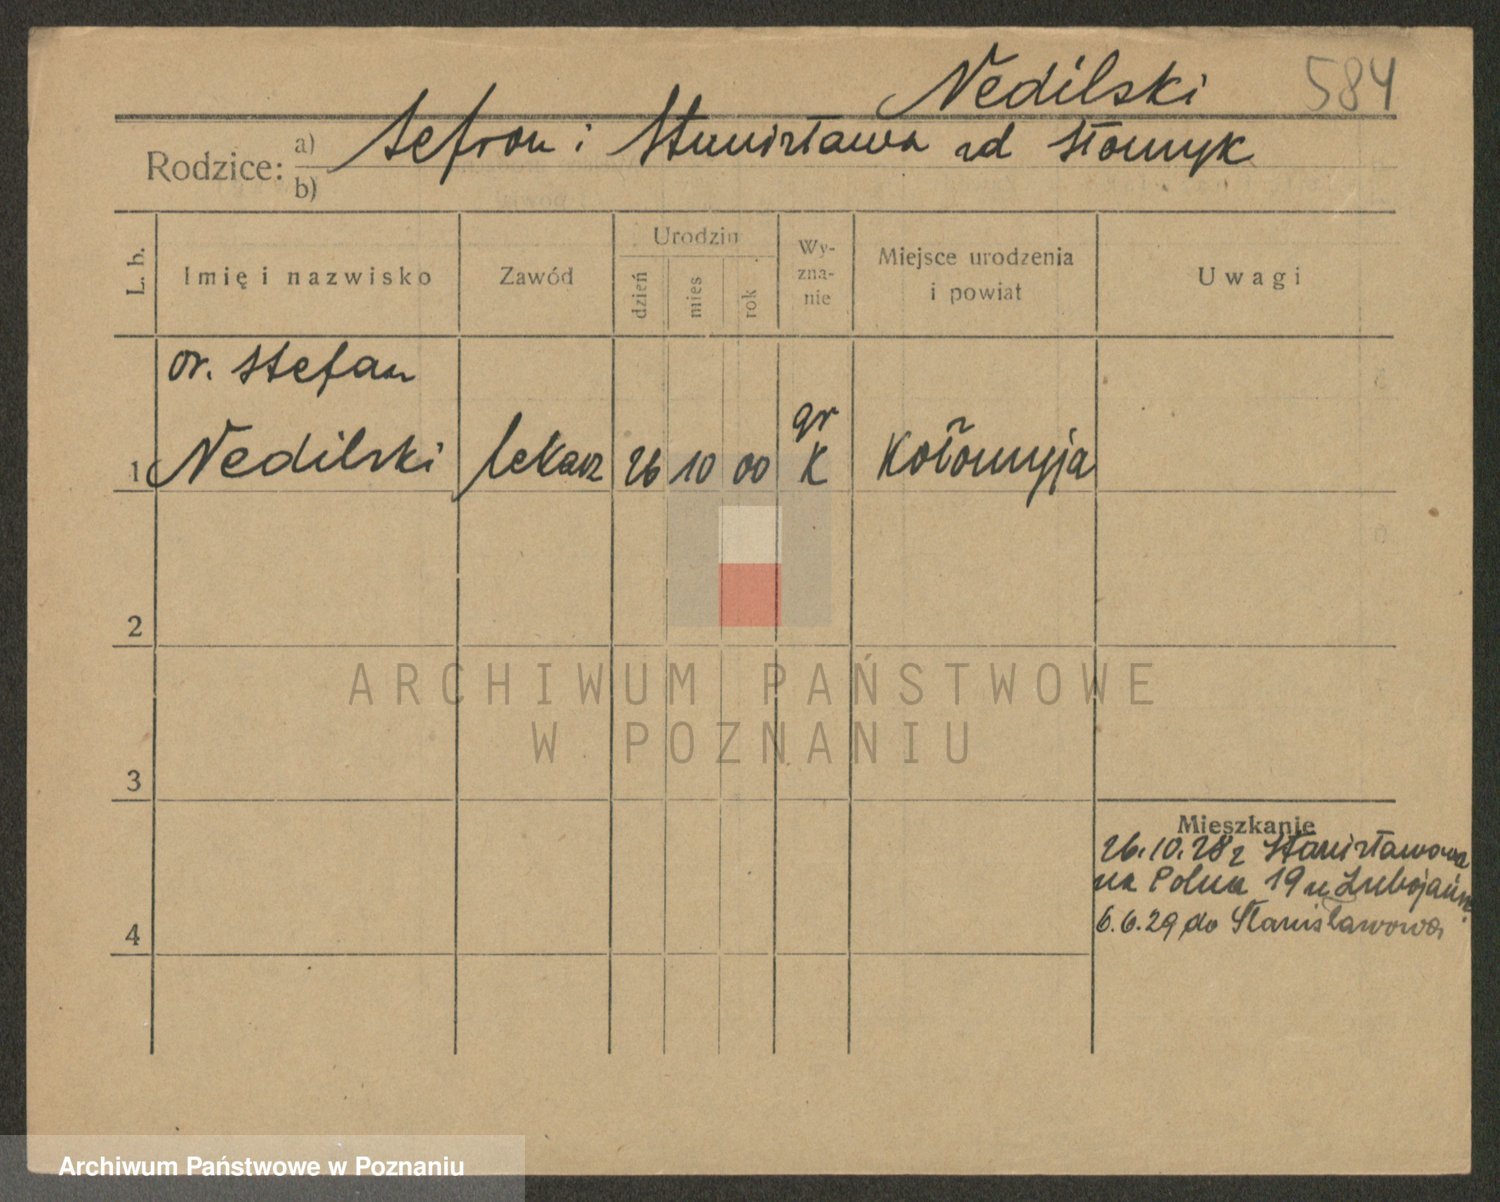 Nedilski 584
Rodzice: a) Sefron i Stanisława zd Słomyk
b)
L. b. Imię i nazwisko Zawód Urodzin dzień mies rok Wy-zna-nie Miejsce urodzenia i powiat Uwagi
Dr. Stefan
1 Nedilski lekarz 26 10 00 gr K Kołomyja
2
ARCHIWUM PAŃSTWOWE
W POZNANIU
3
Mieszkanie
26.10.28 z Stanisławowa
na Polna 19 u
6.6.29 do Stanisławowa
4
Archiwum Państwowe w Poznaniu